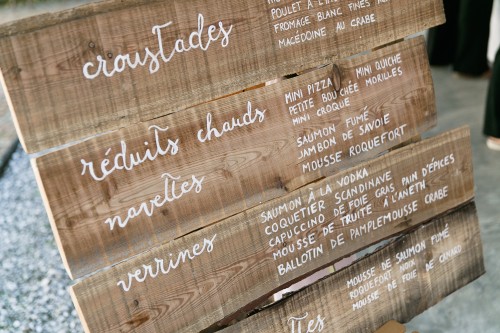 POULET À L'
FROMAGE BLANC FINES
MACÉDOINE AU CRABE
croustades
MINI PIZZA MINI QUICHE
PETITE BOUCHÉE MORILLES
MINI CROQUE
réduits chauds
SAUMON FUMÉ
JAMBON DE SAVOIE
MOUSSE ROQUEFORT
navettes
SAUMON À LA VODKA
COQUETIER SCANDINAVE
CAPUCCINO DE FOIE GRAS PAIN D'ÉPICES
MOUSSE DE TRUITE À L'ANETH
BALLOTIN DE PAMPLEMOUSSE CRABE
verrines
MOUSSE DE SAUMON FUMÉ
ROQUEFORT NOIX
MOUSSE DE FOIE DE CANARD